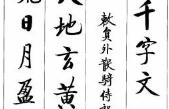 千字文
敕員外散騎侍
地玄黃
日月盈